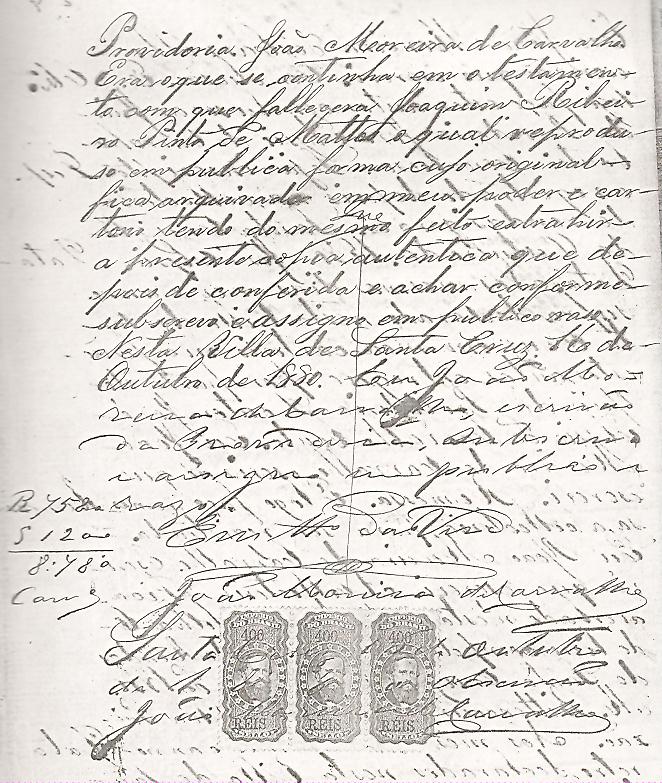 Providoria João Moreira de Carvalho.
Era o que se continha em o testamen-
to com que fallecera Joaquim Ribei-
ro Pinto de Mattos o qual reprodu-
so em publica forma, cujo original
fica archivado em meu poder e car-
torio tendo do mesmo feito extrahir
a presente copia authentica que de-
pois de conferida e achar conforme
subscrevo e assigno em publico raso
Nesta Villa de Santa Cruz 16 de
Outubro de 1880. Eu João Mo-
reira de Carvalho, escrivão
da Provedoria, subscrevi
e assigno em publico e
R 758 razo.
S 120 Em Ttº da Verde
8:78
João Moreira de Carvalho
400 400 400
Santa Outubro
de
REIS REIS REIS
João Carvalho